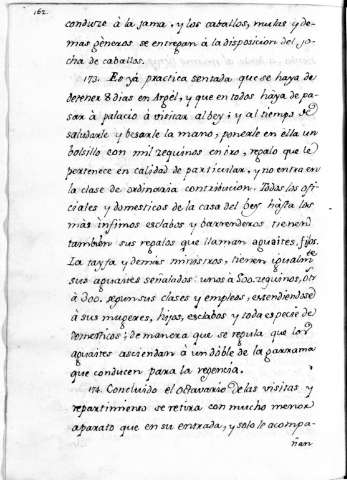 162.
conduze à la jama, y los caballos, mulas y de-
mas gèneros se entregan à la disposicion del jo-
cha de caballos.
173. Es yà practica sentada que se haya de
detener 8 dias en Argèl, y que en todos haya de pa-
sar à palacio à visitar al bey; y al tiempo de
saludarle y besarle la mano, ponerle en èlla un
bolsillo con mil zequinos en òro, regalo que le
pertenece en calidad de particular, y no entra en
la clase de ordinaria contribucion. Todos los ofi-
ciales y domesticos de la casa del bey hasta los
màs infimos esclabos y barrenderos tienen
tambien sus regalos que llaman aguaites fijos.
La tayfa y demàs ministros, tienen igualmte
sus aguaites señalados: unos à 500. zequinos, otr
à 200. segun sus clases y empleos, estendiendose
à sus mugeres, hijos, esclabos y toda especie de
domesticos; de manora que se regula que los
aguaites asciendan à un doble de la garrama
que conducen para la regencia.
174. Concluido el octavario de las visitas y
repartimiento se retira con mucho menor
aparato que en su entrada, y solo le acompa-
ñan